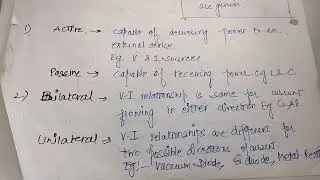 are given
1) Active → capable of delivering power to an
external device
Eg. V & I sources
Passive → capable of receiving power eg L & C
2) Bilateral → V-I relationship is same for current
flowing in either direction Eg
Unilateral → V-I relationships are different for
two possible directions of current
Eg:- Vacuum Diode, diode, Metal Recti